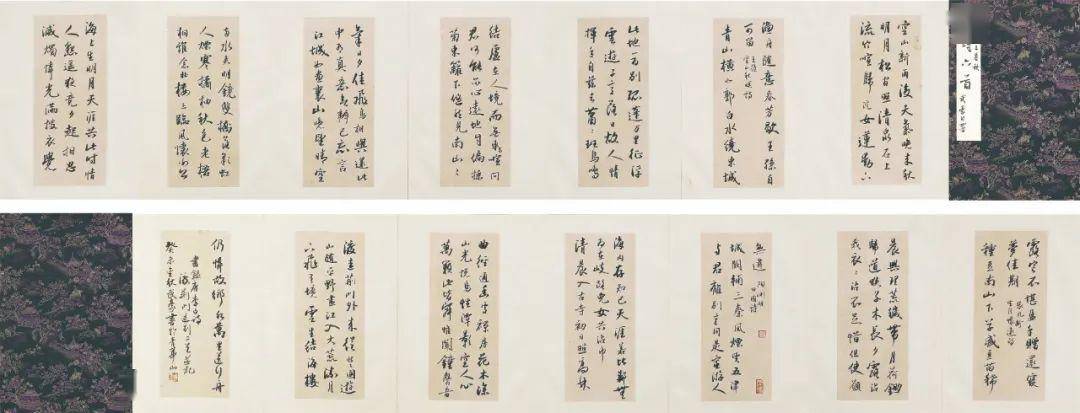 六首
空山新雨後天氣晚來秋
明月松間照清泉石上
流竹喧歸浣女蓮動下
漁舟隨意春芳歇王孫自
可留
王維
山居秋暝詩
青山橫北郭白水繞東城
此地一為別孤蓬萬里征浮
雲遊子意落日故人情
揮手自茲去蕭々班馬鳴
結廬在人境而無車喧問
君何能爾心遠地自偏採
菊東籬下悠然見南山々
氣日夕佳飛鳥相與還此
中有真意欲辨已忘言
江城如畫裏山曉望晴空
兩水夾明鏡雙橋落彩虹
人煙寒橘柚秋色老梧
桐誰念北樓上臨風懷謝公
海上生明月天涯共此時情
人怨遙夜竟夕起相思
滅燭憐光滿披衣覺
露滋不堪盈手贈還寢
夢佳期
張九齡
望月懷遠
種豆南山下草盛豆苗稀
晨興理荒穢帶月荷鋤
歸道狹草木長夕露沾
我衣々沾不足惜但使願
無違
陶淵明
田園詩
城闕輔三秦風煙望五津
與君離別意同是宦游人
海內存知己天涯若比鄰無
為在歧路兒女共沾巾
清晨入古寺初日照高林
曲徑通幽處禪房花木深
山光悅鳥性潭影空人心
萬籟此皆寂惟聞鐘磬音
渡遠荊門外來從楚國遊
山隨平野盡江入大荒流月
下飛天鏡雲生結海樓
仍憐故鄉水萬里送行舟
書錄唐李白詩
渡荊門送別
癸未秋武書於青華山